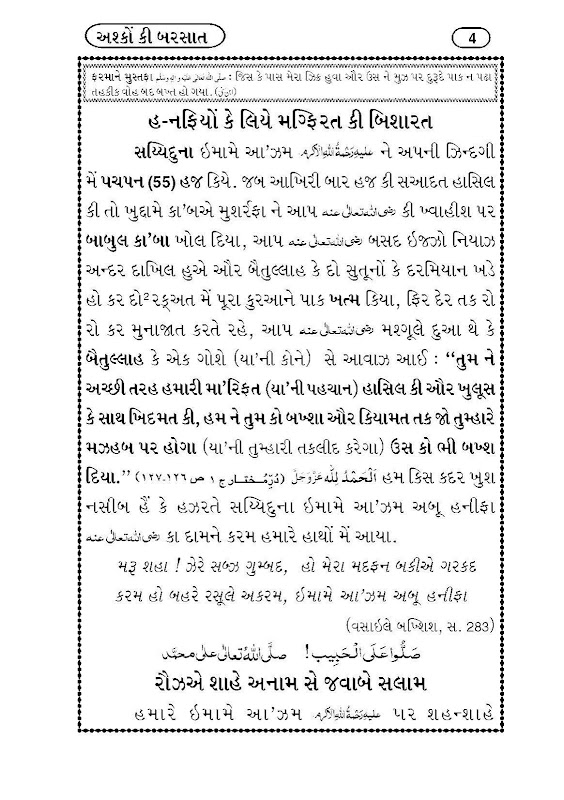 અશ્કોં કી બરસાત
4
ફરમાને મુસ્તફા صلى الله تعالى عليه واله وسلم : જિસ કે પાસ મેરા ઝિક્ર હુવા ઔર ઉસ ને મુઝ પર દુરૂદે પાક ન પઢા
તહકીક વોહ બદ બખ્ત હો ગયા.
હ-નફિયોં કે લિયે મગ્ફિરત કી બિશારત
સય્યિદુના ઇમામે આ'ઝમ عليه رحمة الله الاكرم ને અપની ઝિન્દગી
મેં પચપન (55) હજ કિયે. જબ આખિરી બાર હજ કી સઆદત હાસિલ
કી તો ખુદ્દામે કા'બએ મુશર્રફા ને આપ رضى الله تعالى عنه કી ખ્વાહીશ પર
બાબુલ કા'બા ખોલ દિયા, આપ رضى الله تعالى عنه બસદ ઇજ્ઝો નિયાઝ
અન્દર દાખિલ હુએ ઔર બૈતુલ્લાહ કે દો સુતૂનોં કે દરમિયાન ખડે
હો કર દો² રક્અત મેં પૂરા કુરઆને પાક ખત્મ કિયા, ફિર દેર તક રો
રો કર મુનાજાત કરતે રહે, આપ رضى الله تعالى عنه મશ્ગૂલે દુઆ થે કે
બૈતુલ્લાહ કે એક ગોશે (યા'ની કોને) સે આવાઝ આઈ : ‘‘તુમ ને
અચ્છી તરહ હમારી મા'રિફત (યા'ની પહચાન) હાસિલ કી ઔર ખુલૂસ
કે સાથ ખિદમત કી, હમ ને તુમ કો બખ્શા ઔર કિયામત તક જો તુમ્હારે
મઝહબ પર હોગા (યા'ની તુમ્હારી તકલીદ કરેગા) ઉસ કો ભી બખ્શ
દિયા.’’ (دُرِّمُختار ج ١ ص ١٢٦۔١٢٧) اَلْحَمْدُ لِلّٰه عَزَّوَجَلَّ હમ કિસ કદર ખુશ
નસીબ હૈં કે હઝરતે સય્યિદુના ઇમામે આ'ઝમ અબૂ હનીફા
رضى الله تعالى عنه કા દામને કરમ હમારે હાથોં મેં આયા.
મરૂ શહા ! ઝેરે સબ્ઝ ગુમ્બદ, હો મેરા મદફન બકીએ ગરકદ
કરમ હો બહરે રસૂલે અકરમ, ઇમામે આ'ઝમ અબૂ હનીફા
(વસાઇલે બખ્શિશ, સ. 283)
صَلُّوا عَلَى الْحَبِيب ! صلَّى اللهُ تعالٰى علٰى محمَّد
રૌઝએ શાહે અનામ સે જવાબે સલામ
હમારે ઇમામે આ'ઝમ عليه رحمة الله الاكرم પર શહન્શાહે